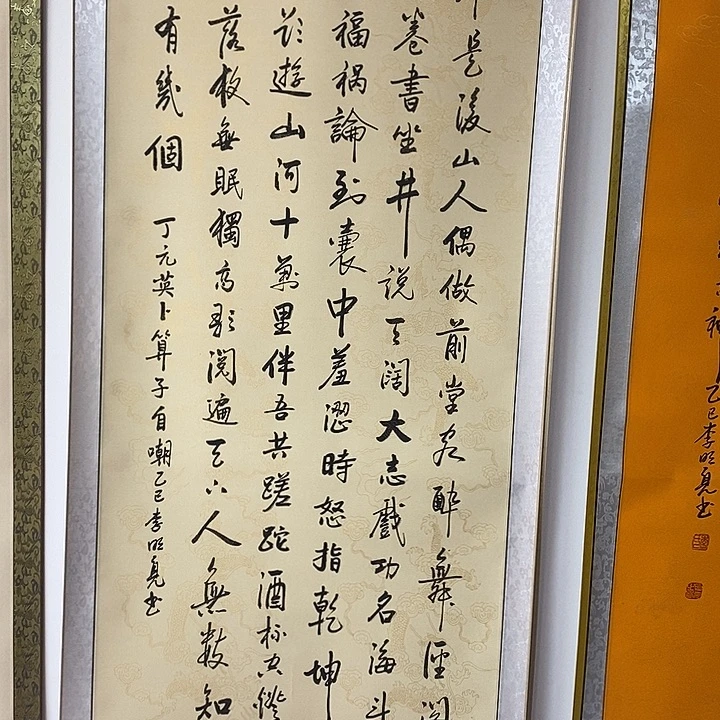 是後山人偶做前堂客醉舞徑閣
卷書坐井說天闊大志戲功名海斗
福禍論到囊中羞澀時怒指乾坤
遊山河十萬里伴吾共蹉跎酒杯空
落枕無眠獨高歌閱遍天下人無數知
有幾個
丁元英卜算子自嘲乙巳李明亮书
乙巳李明亮书